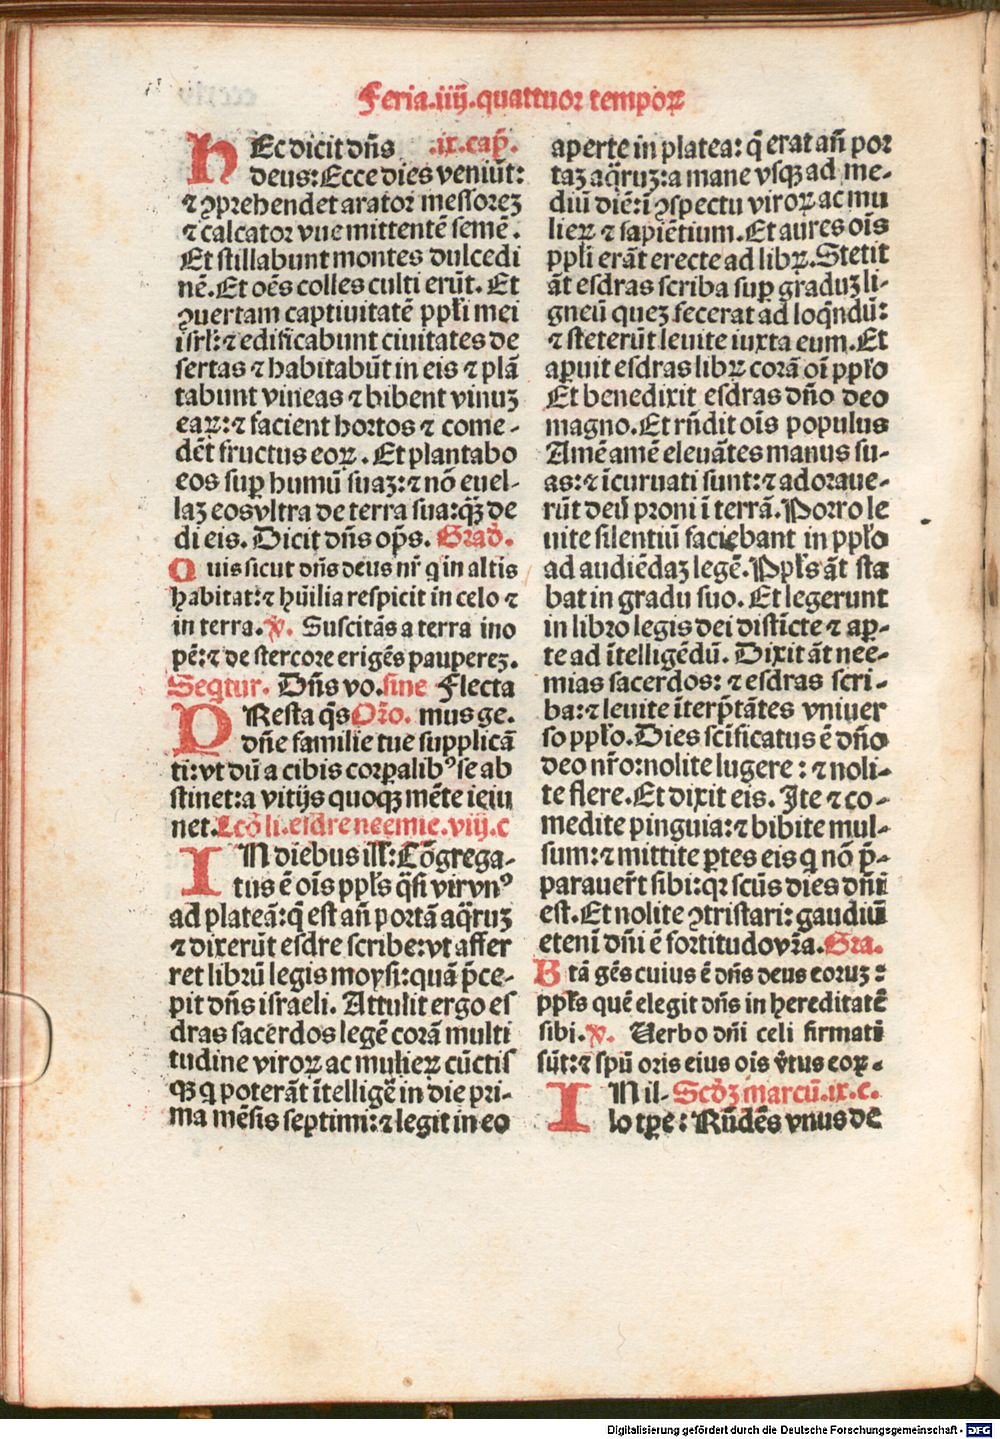 Feria.iiij.quattuor tempoꝝ
HEc dicit dñs .ix.cap̃.
deus: Ecce dies veniũt:
⁊ ꝯprehendet arator messoreꝫ
⁊ calcator vue mittentẽ semẽ.
Et stillabunt montes dulcedi
nẽ. Et oẽs colles culti erũt. Et
ꝯuertam captiuitatẽ ppl̃i mei
isrl̃: ⁊ edificabunt ciuitates de
sertas ⁊ habitabũt in eis ⁊ plã
tabunt vineas ⁊ bibent vinuꝫ
eaꝝ: ⁊ facient hortos ⁊ come-
dẽt fructus eoꝝ. Et plantabo
eos sup humũ suaꝫ: ⁊ nõ euel-
laꝫ eos vltra de terra sua: qͣꝫ de
di eis. Dicit dñs op̃s. Grad̃.
Quis sicut dñs deus nr̃ q in altis
habitat: ⁊ hũilia respicit in celo ⁊
in terra. ℣. Suscitãs a terra ino
pẽ: ⁊ de stercore erigẽs paupereꝫ.
Seqtur. Dñs vo. sine Flecta
PResta q̃s Or̃o. mus ge.
dñe familie tue supplicã
ti: vt dũ a cibis corꝑalibꝰ se ab
stinet: a vitijs quoqꝫ mẽte ieiu
net. Lcõ li. esdre neemie. viij. c
IN diebus ill̃: Cõgrega-
tus ẽ oĩs ppl̃s q̃si vir vnꝰ
ad plateã: q̃ est añ portã aq̃ruꝫ
⁊ dixerũt esdre scribe: vt affer
ret librũ legis moysi: quã p̃ce-
pit dñs israeli. Attulit ergo es
dras sacerdos legẽ corã multi
tudine viroꝝ ac mulieꝝ cũctis
qꝫ q poterãt ĩtelligẽ in die pri-
ma mẽsis septimi: ⁊ legit in eo
aperte in platea: q̃ erat añ por
taꝫ aq̃ruꝫ: a mane vsqꝫ ad me-
diũ diẽ: ĩ ꝯspectu viroꝝ ac mu
lieꝝ ⁊ sapiẽtium. Et aures oĩs
ppl̃i erãt erecte ad libꝝ. Stetit
ãt esdras scriba sup graduꝫ li-
gneũ queꝫ fecerat ad loq̃ndũ:
⁊ steterũt leuite iuxta eum. Et
aꝑuit esdras libꝝ corã oĩ ppl̃o
Et benedixit esdras dño deo
magno. Et rñdit oĩs populus
Amẽ amẽ eleuãtes manus su-
as: ⁊ ĩcuruati sunt: ⁊ adoraue-
rũt deũ proni ĩ terrã. Porro le
uite silentiũ faciebant in ppl̃o
ad audiẽdaꝫ legẽ. Ppl̃s ãt sta
bat in gradu suo. Et legerunt
in libro legis dei distĩcte ⁊ aꝑ-
te ad ĩtelligẽdũ. Dixit ãt nee-
mias sacerdos: ⁊ esdras scri-
ba: ⁊ leuite ĩterp̃tãtes vniuer
so ppl̃o. Dies scĩficatus ẽ dño
deo nr̃o: nolite lugere: ⁊ noli-
te flere. Et dixit eis. Ite ⁊ co-
medite pinguia: ⁊ bibite mul-
sum: ⁊ mittite ꝑtes eis q nõ p̃-
parauer̃t sibi: qꝛ scũs dies dñi
est. Et nolite ꝯtristari: gaudiũ
etenĩ dñi ẽ fortitudo vr̃a. Gra.
Btã gẽs cuius ẽ dñs deus eoruꝫ:
ppl̃s quẽ elegit dñs in hereditatẽ
sibi. ℣. Verbo dñi celi firmati
sũt: ⁊ spũ oris eius oĩs v̾tus eoꝝ.
IN il- Scd̾ꝫ marcũ. ix. c.
lo tꝑe: Rñdẽs vnus de
Digitalisierung gefördert durch die Deutsche Forschungsgemeinschaft - DFG